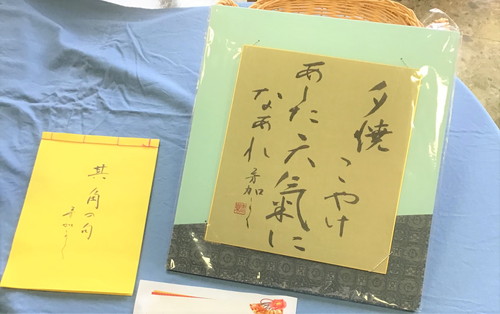 夕焼
こやけ
あした天氣に
なあれ
其角の句